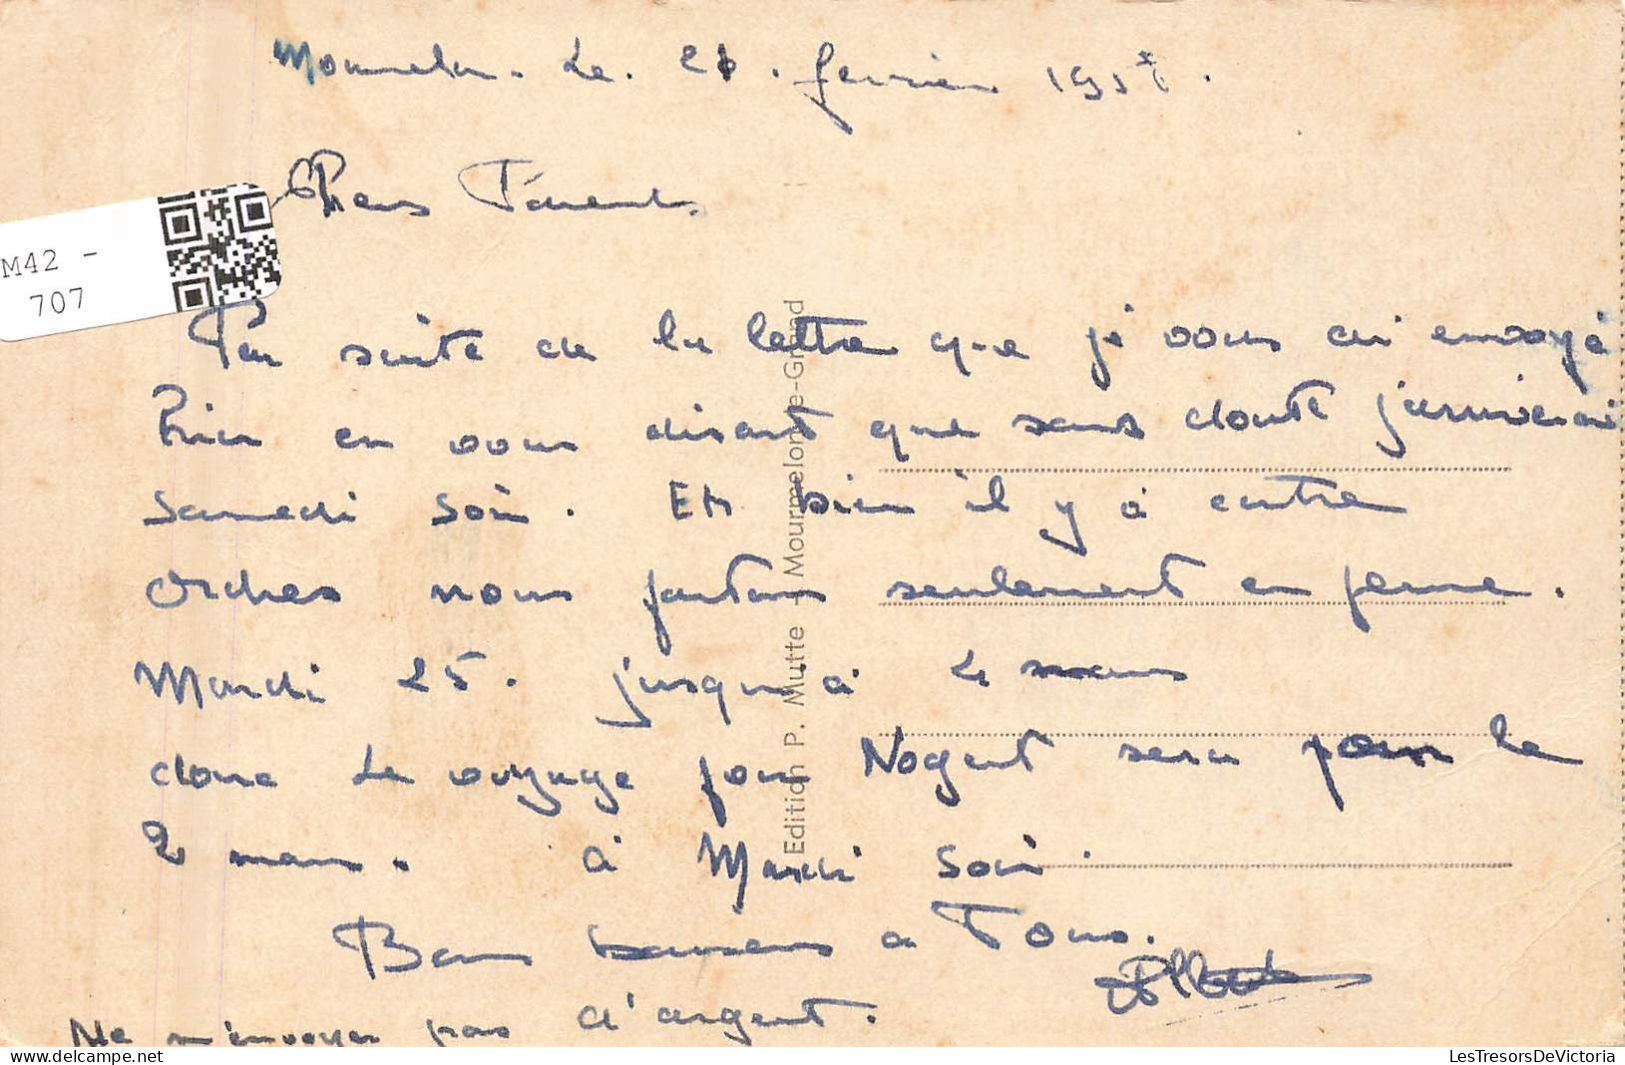 Mourmelon. Le. 21. février 195
Chers Parents
M42 -
707
Par suite de la lettre que je vous ai envoyé
hier en vous disant que sans doute j'arriverai
Samedi soir. Eh bien il y a contre
Ordres nous partons seulement en perme.
Mardi 25. jusqu'à 2 mars
donc le voyage pour Nogent sera pour le
2 mars. à Mardi soir.
Bons baisers a Tous.
Albert
Ne m'envoyer pas d'argent.
Edition P. Mutte - Mourmelon-le-Grand
LesTresorsDeVictoria